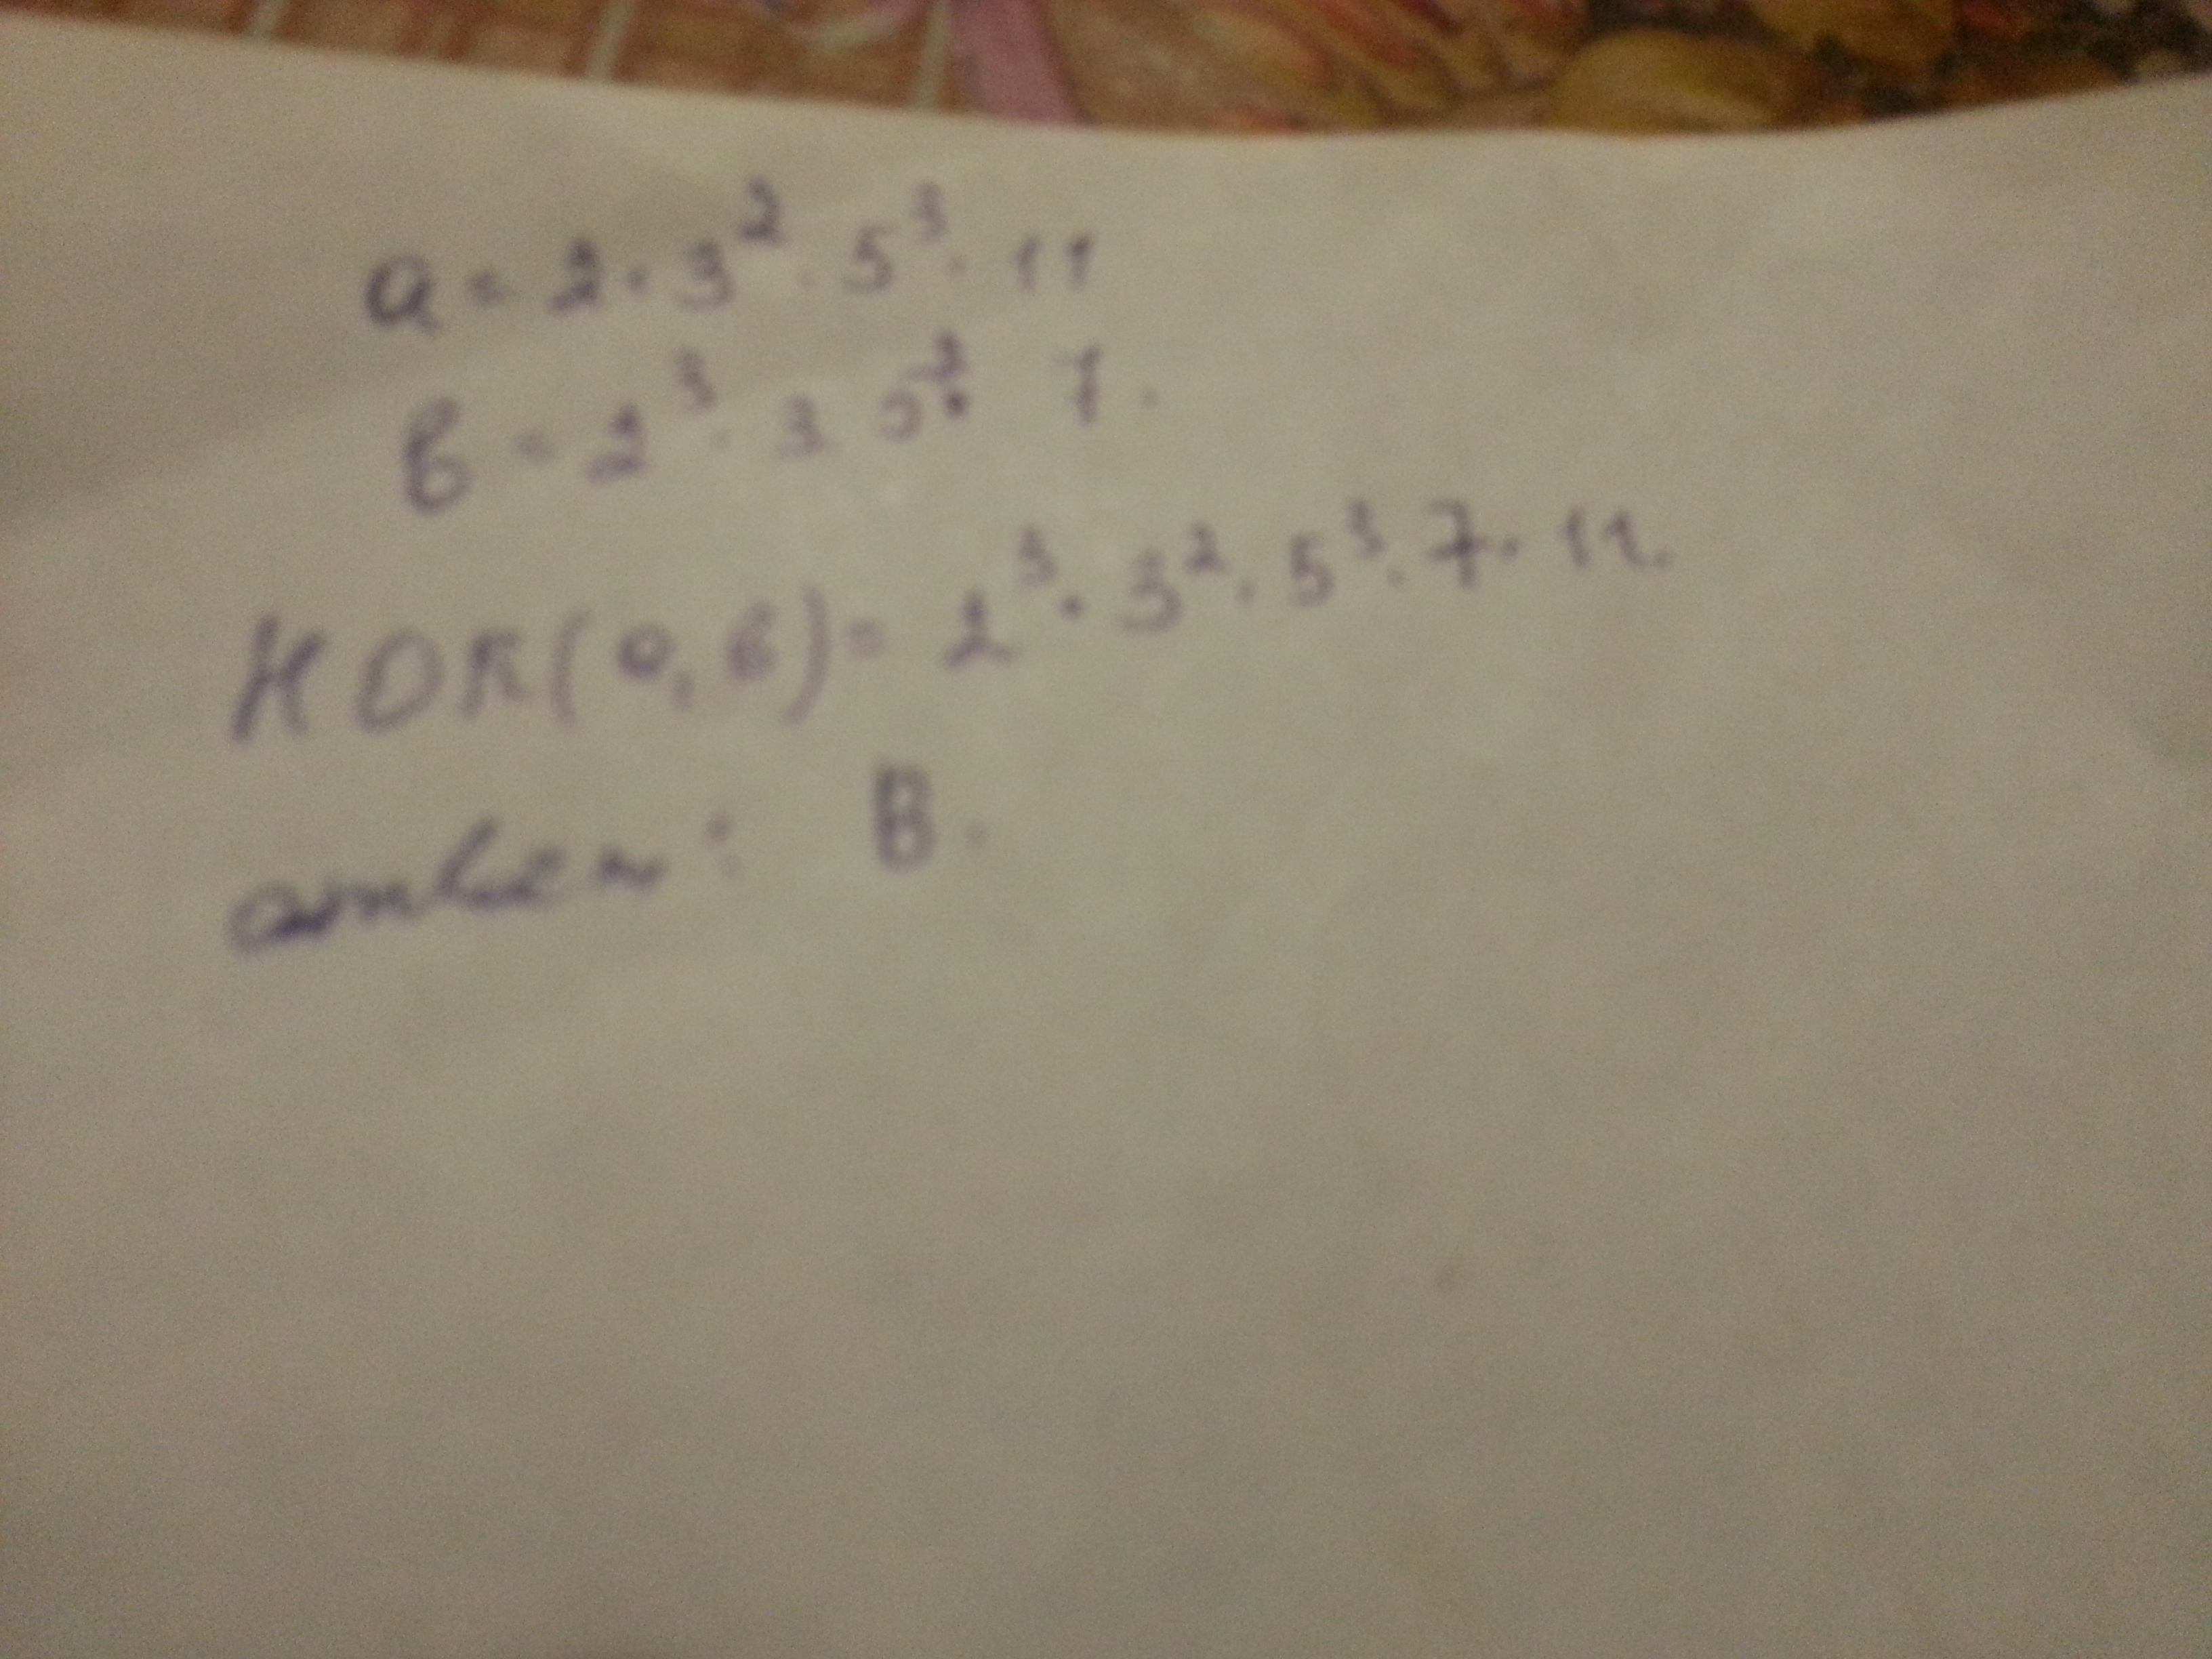 a = 2 · 3² · 5³ · 11
в = 2³ · 3 5² · 7.
НОК(а, в) = 2³ · 3² · 5³ · 7 · 11.
ответ: В.